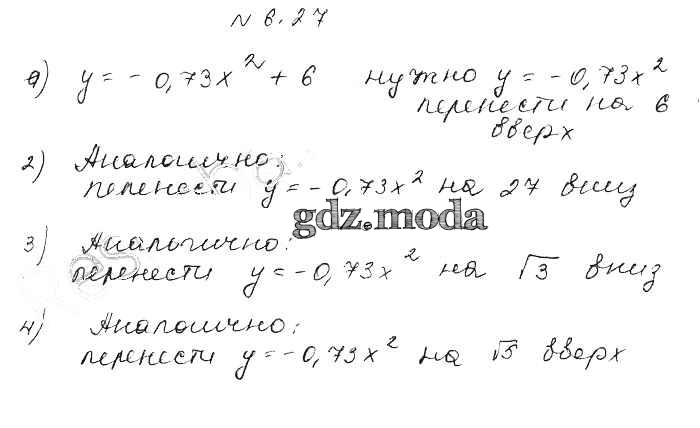 № 6.27
а) y = - 0,73x² + 6 нужно y = - 0,73x²
перенести на 6
вверх
2) Аналогично:
перенести y = - 0,73x² на 27 вниз
gdz.moda
3) Аналогично:
перенести y = - 0,73x² на √3 вниз
4) Аналогично:
перенести y = - 0,73x² на √5 вверх